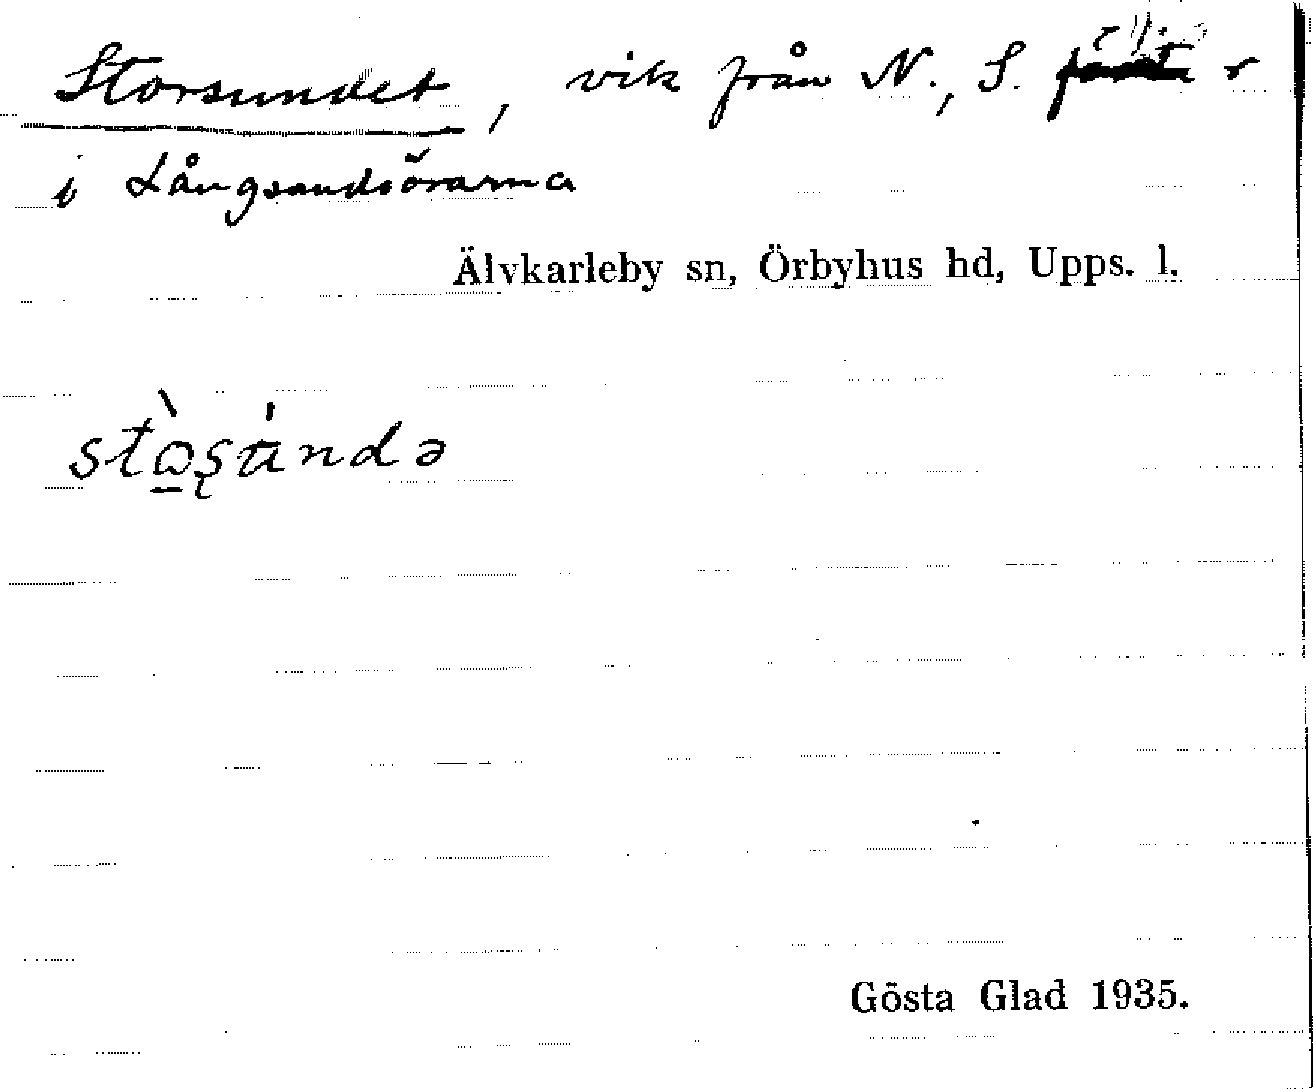 Storsundet, vik från N., S.
i Långsandsörarna
Älvkarleby sn, Örbyhus hd, Upps. l.
Gösta Glad 1935.